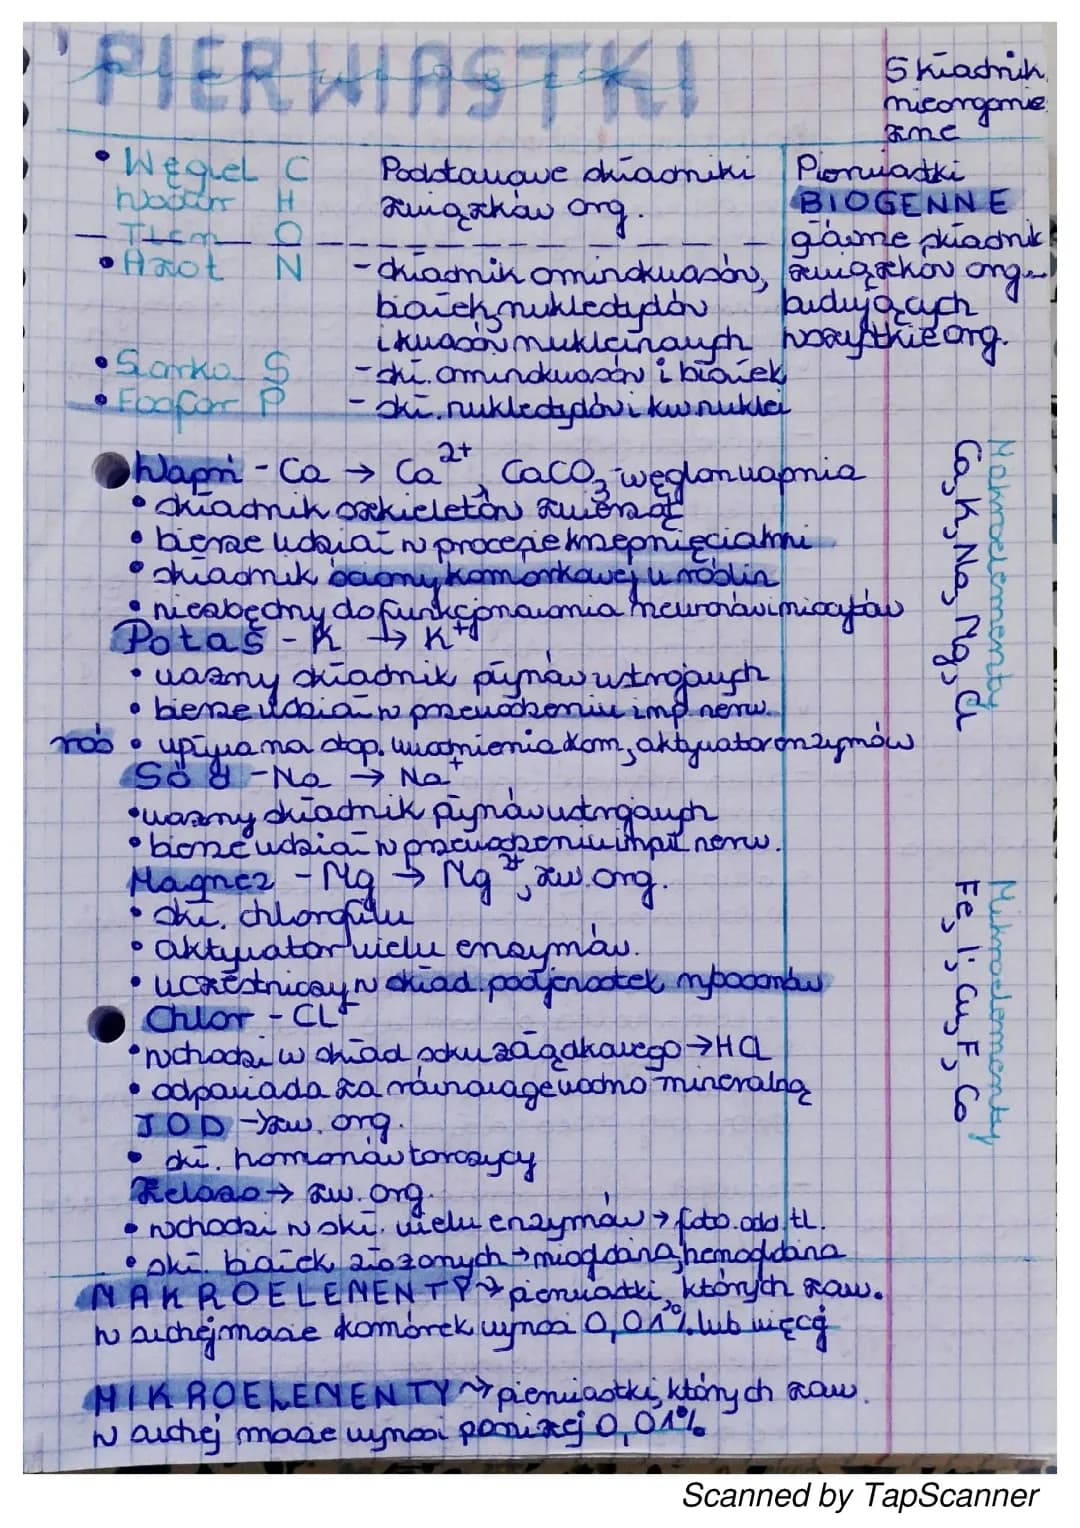 PIERWIASTKI
Składnik
nieorgani
czne
• Węgiel C Podstawowe składniki
Wodór H związków org.
Tlen O
Pierwiastki
BIOGENNE
główne składnik
związków org.
budujących
wszystkie org.
• Azot N - składnik aminokwasów,
białek, nukleotydów
i kwasów nukleinowych
• Siarka S - skł. aminokwasów i białek
• Fosfor P - skł. nukleotydów i kw nuklei
Wapń - Ca → Ca2+, CaCO3 - węglan wapnia
• składnik szkieletów zwierząt
• bierze udział w procesie krzepnięcia krwi
• składnik ściany komórkowej u roślin
• niezbędny do funkcjonowania neuronów i miocytów
Potas - K → K+
• ważny składnik płynów ustrojowych
• bierze udział w przewodzeniu imp. nerw.
roś • wpływa na stop. uwodnienia kom, aktywator enzymów
Sód - Na → Na+
• ważny składnik płynów ustrojowych
• bierze udział w przewodzeniu impul nerw.
Magnez - Mg → Mg2+, zw. org.
• skł. chlorofilu
• aktywator wielu enzymów.
• uczestniczy w skład. podjednostek rybosomów
Chlor - CL-
• wchodzi w skład soku żołądkowego → HCl
• odpowiada za równowagę wodno mineralną
JOD → zw. org.
• skł. hormonów tarczycy
Żelazo → zw. org.
• wchodzi w skł. wielu enzymów → foto. odd. tl.
• skł. białek złożonych → mioglobina, hemoglobina
MAKROELEMENTY → pierwiastki, których zaw.
w suchej masie komórek wynosi 0,01% lub więcej
MIKROELEMENTY → pierwiastki, których zaw.
w suchej masie wynosi poniżej 0,01%
Makroelementy
Ca, K, Na, Mg, Cl
Mikroelementy
Fe, I, Cu, F, Co
Scanned by TapScanner